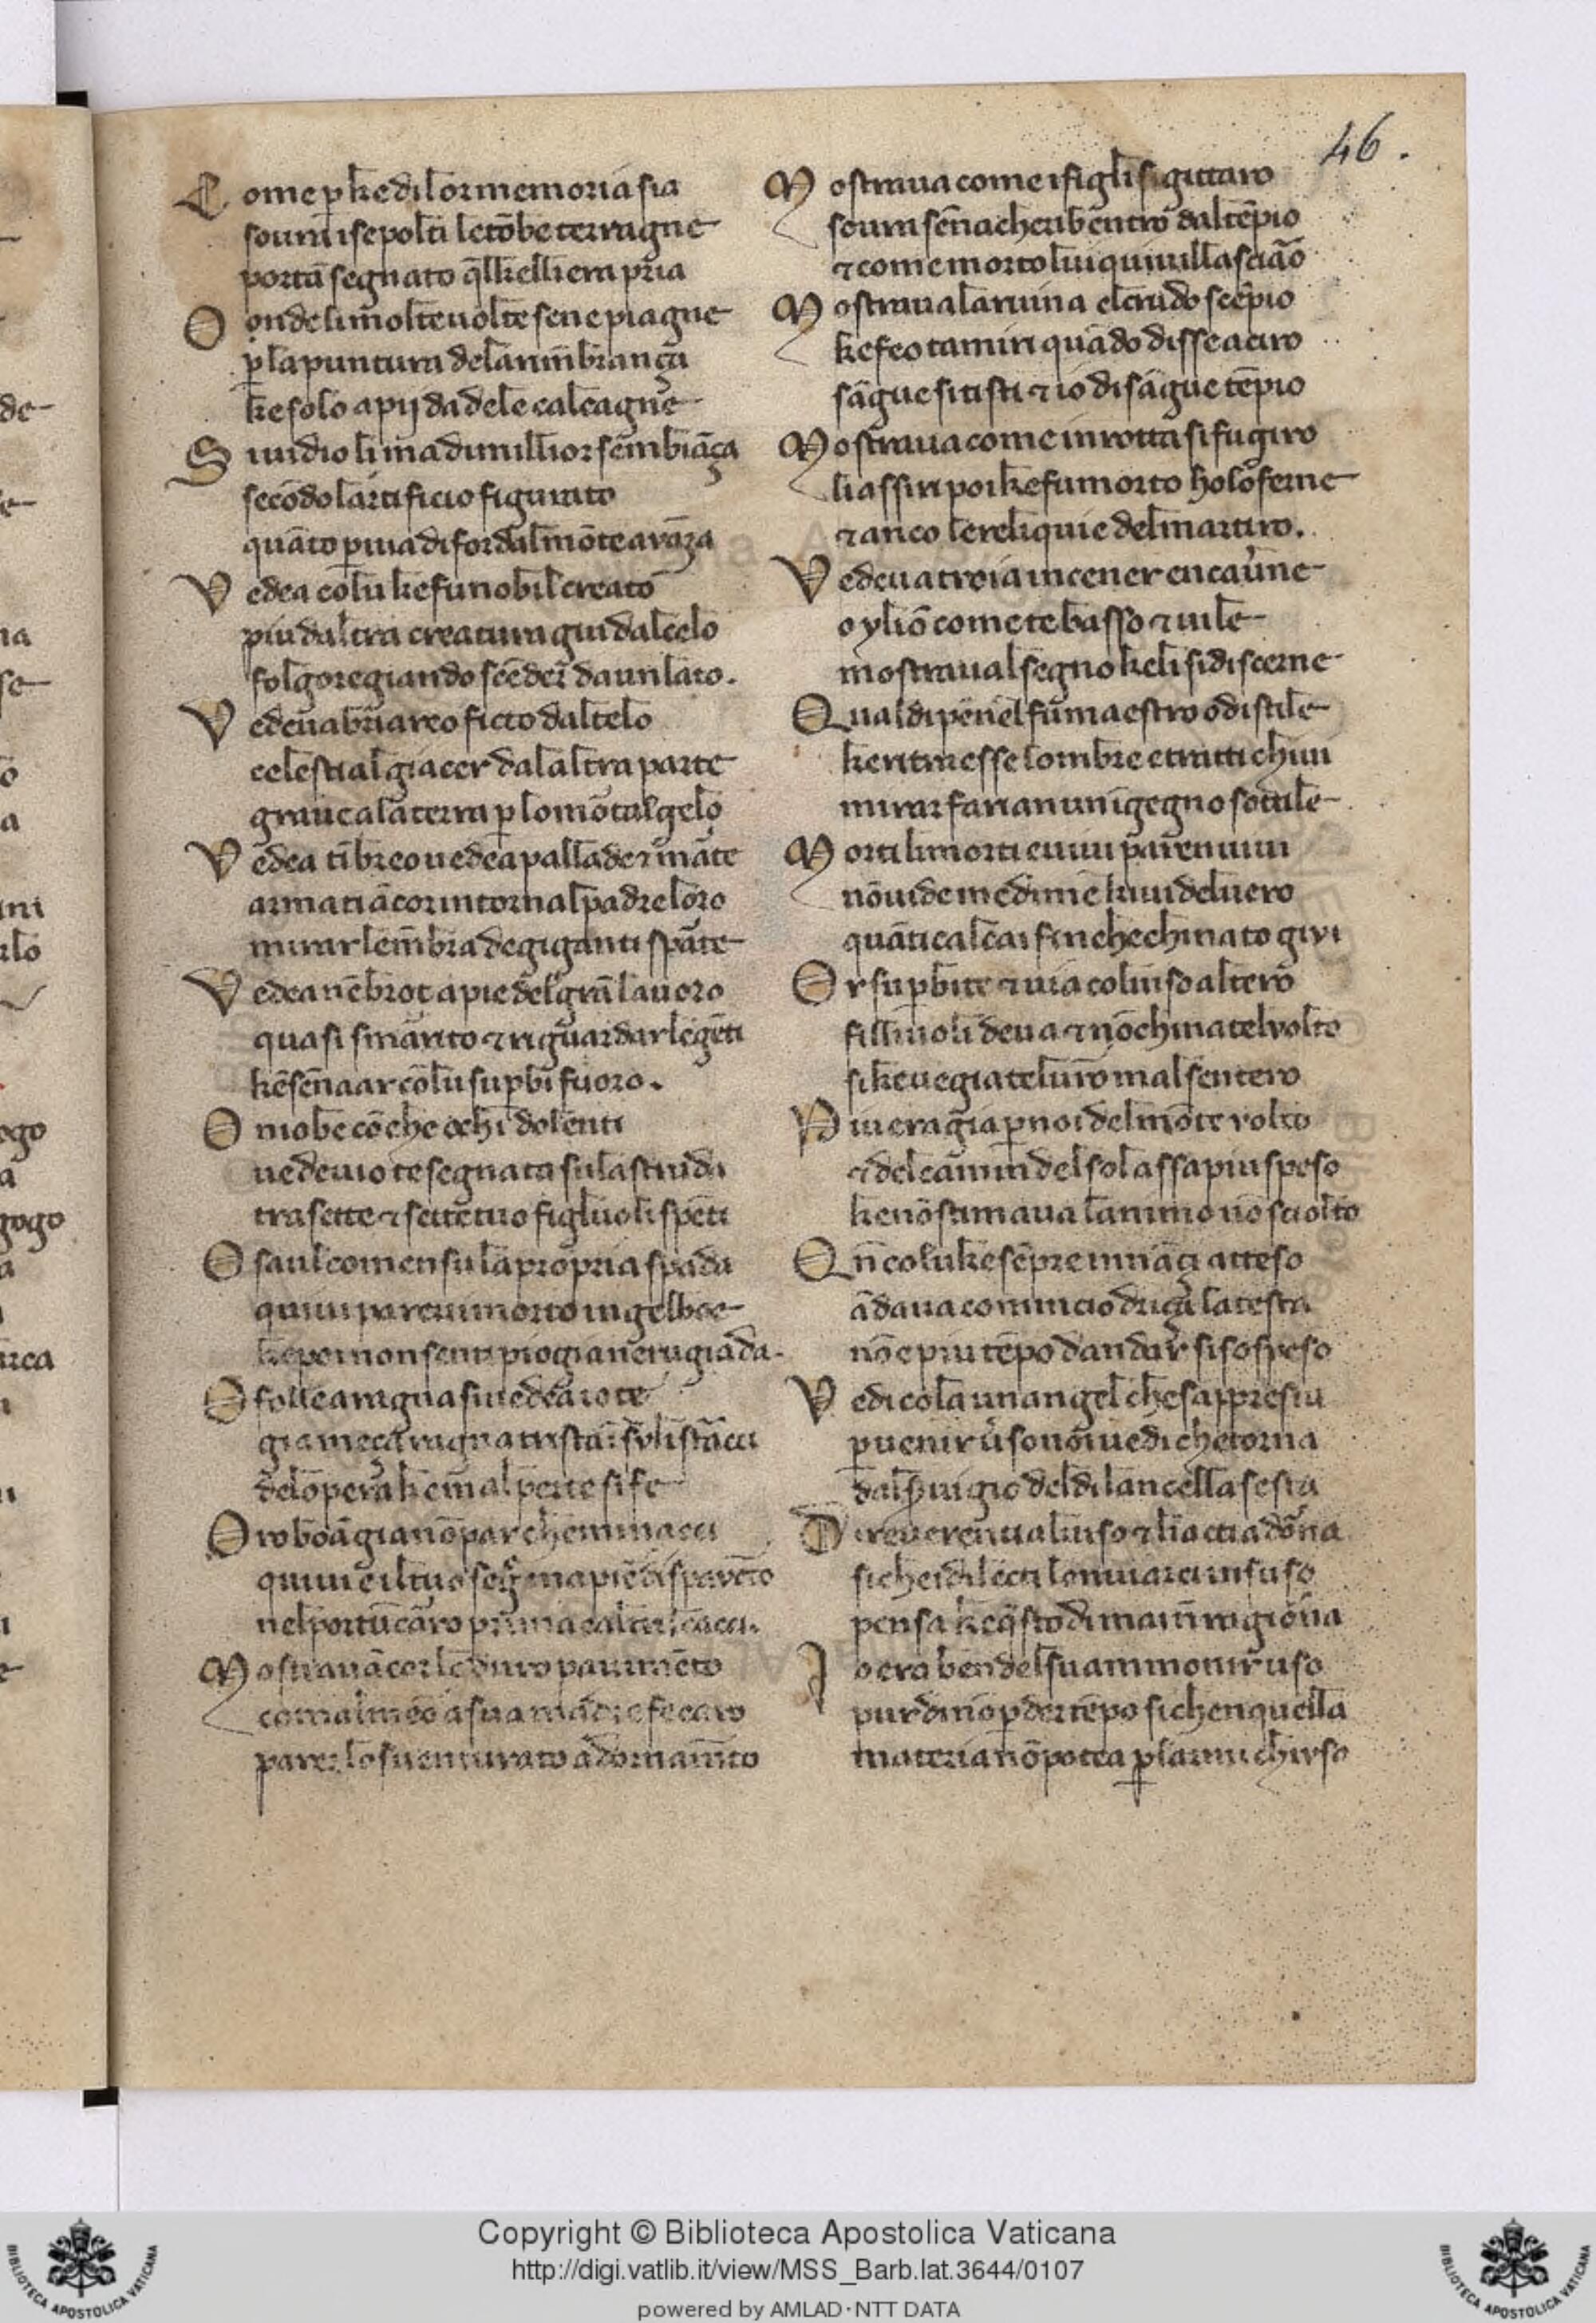 46.
Come p ke di lor memoria sia
sourai sepolti le tōbe terragne
portā segnato q̄l kelli era pria
Oonde li mōlte uolte sene piagne
p la puntura de la rimēbrança
ke solo a pij da de le calcagne
Si uidio li ma di millior sembiāça
secōdo lartificio figurato
quāto p uia di for dal mōte avāza
Vedea colui ke fu nobil creato
piu daltra creatura giu dal celo
folgoregiando scēder da un lato.
Vedeua briareo ficto dal telo
celestial giacer da laltra parte
graue a la terra p lo mortal gelo
Vedea tibreo uedea pallade & marte
armati ācor intorno al padre loro
mirar le mēbra de giganti sparte
Vedea nēbrot a pie del grā lauoro
quasi smarito & riguardar le gēti
kē sēnaar cō lui supbi fuoro.
O niobe cō che ochi dolenti
uedeuio te segnata su la strada
tra sette & sette tuo figliuoli spēti
O saul come n su la propria spada
quiui pareui morto in gelboe
ke poi non senti piogia ne rugiada.
O folle aragna si uedea io te
gia meça ragna trista ī su li stracci
de lopera ke mal per te si fe
O roboā gia nō par che minacci
quiui el tuo segno ma pie di spauēto
nel porta ū carro prima caltri l cacci.
Mostraua ācor lo duro pauimēto
come almeō a sua madre fe caro
parer lo suenturato adornamēto
Mostraua come i figli si gittaro
soura sēnacherib entro dal tēpio
& come morto lui quiui llasciaō
Mostraua la ruina el crudo scēpio
ke feo tamiri quādo disse a ciro
sāgue sitisti & io di sāgue tēpio
Mostraua come in rotta si fugiro
li assiri poi ke fu morto holoferne
& anco le reliquie del martiro.
Vedeua troia in cener en cauerne
o yliō come te basso & uile
mostraua l segno ke li si discerne
Qual di penel fu maestro o di stile
ke ritraesse lombre e tratti chiui
mirar farian un īgegno sottile
Morti li morti e uiui paren uiui
nō uide me di me ki uide l uero
quāti calcai fin che chinato givi
Or supbite & uia col uiso altero
fillivoli deua & nō chinate l volto
si ke uegiate l uro mal sentero
Piu era gia p noi del mōte volto
& del camin del sol assa piu speso
ke nō stimaua lanimo nō sciolto
Qn colui ke sēpre innāçi atteso
ādaua comincio driça la testa
nō e piu tēpo dandar si sospeso
Vedi cola un angel che sappresta
p uenir uer so noi uedi che torna
dal seruigio del di lancella sesta
Di reuerentia l uiso & li acti adorna
si che i diletti lo nuiarci n suso
pensa ke qsto di mai n ragiorna
Io era ben del su ammonir uso
pur di nō pder tēpo si che n quella
materia nō potea parlarmi chiuso
Copyright © Biblioteca Apostolica Vaticana
http://digi.vatlib.it/view/MSS_Barb.lat.3644/0107
powered by AMLAD·NTT DATA
BIBLIOTECA APOSTOLICA VATICANA
BIBLIOTECA APOSTOLICA VATICANA